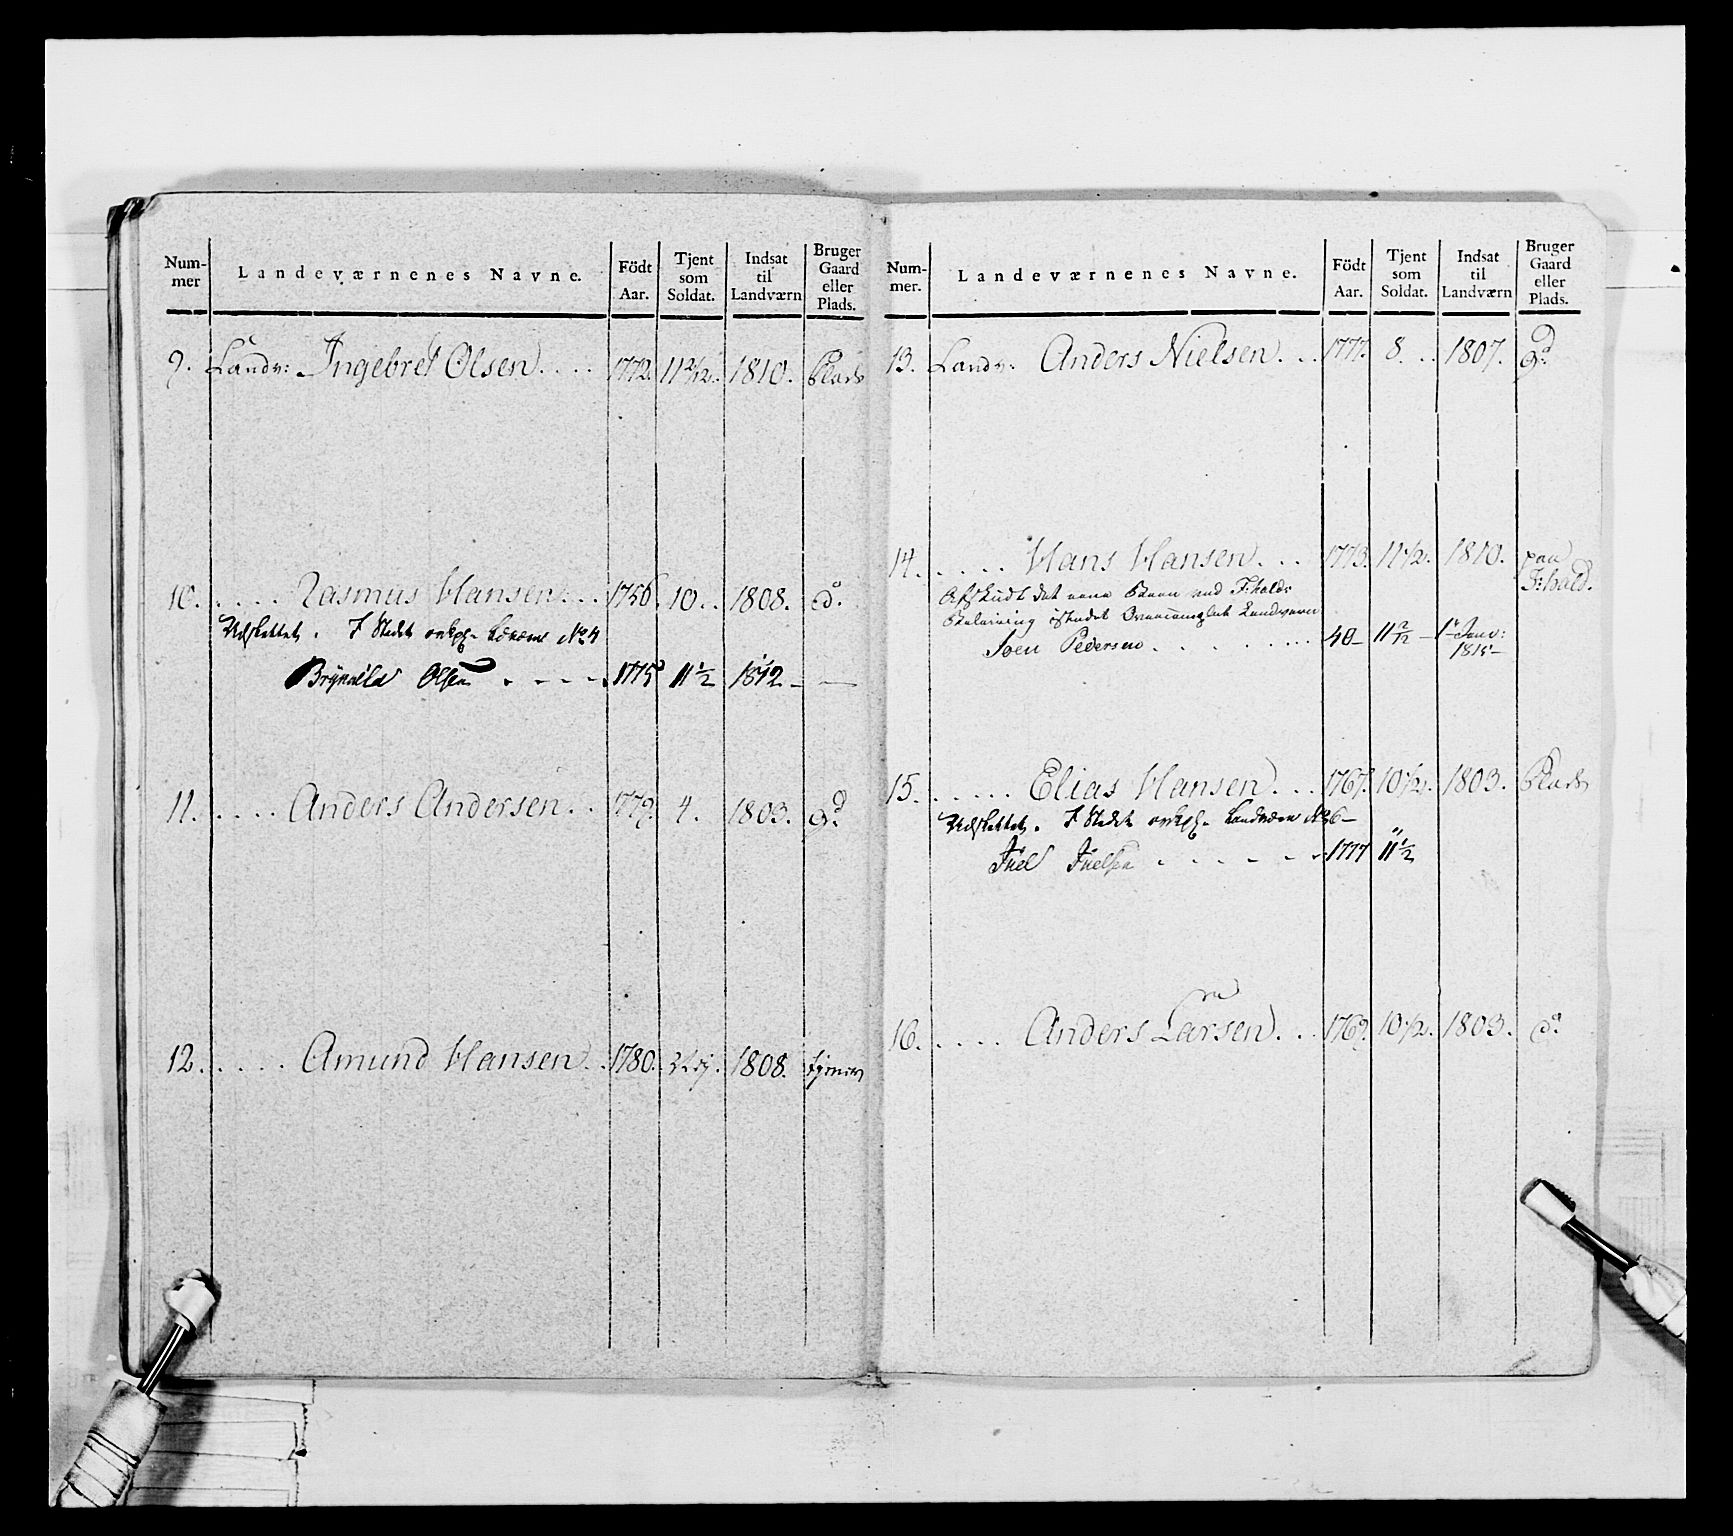 Num-
mer
Landeværnenes Navne.
Födt
Aar.
Tjent
som
Soldat.
Indsat
til
Landværn
Bruger
Gaard
eller
Plads.
9. Landv: Ingebret Olsen . . . . 1772. 11 2/12. 1810. Plads
10. . . . . Rasmus Hansen . . . 1756. 10. . 1808. do.
Udslettet. I Stedet No 4
Brynild Olsen . . . . 1775 11 1/2 1812 – –
11. . . . . Anders Andersen . . 1779. 4. 1803. Gd.
12. . . . . Amund Hansen . . 1780. 1808.
Num-
mer.
Landeværnenes Navne.
Födt
Aar.
Tjent
som
Soldat.
Indsat
til
Landværn
Bruger
Gaard
eller
Plads.
13. Landv: Anders Nielsen . . . 1777. 8. . . 1807. Gd.
14. . . . . Hans Hansen . . . 1773. 11 1/2. 1810. paa
F:hald.
det ene Been ved F:halds
istedet Landværn
Soen Pedersen . . . . . . . 40 – 11 2/12 – 1r Janv:
1815 –
15. . . . . . Elias Hansen . . . 1767. 10 1/2. 1803. Plads
Udslettet. I Stedet Landværn No 6 –
Juel Juelsen . . . . . . 1777 11 1/2
16. . . . . Anders Larsen . . . 1769. 10 1/2. 1803. do.